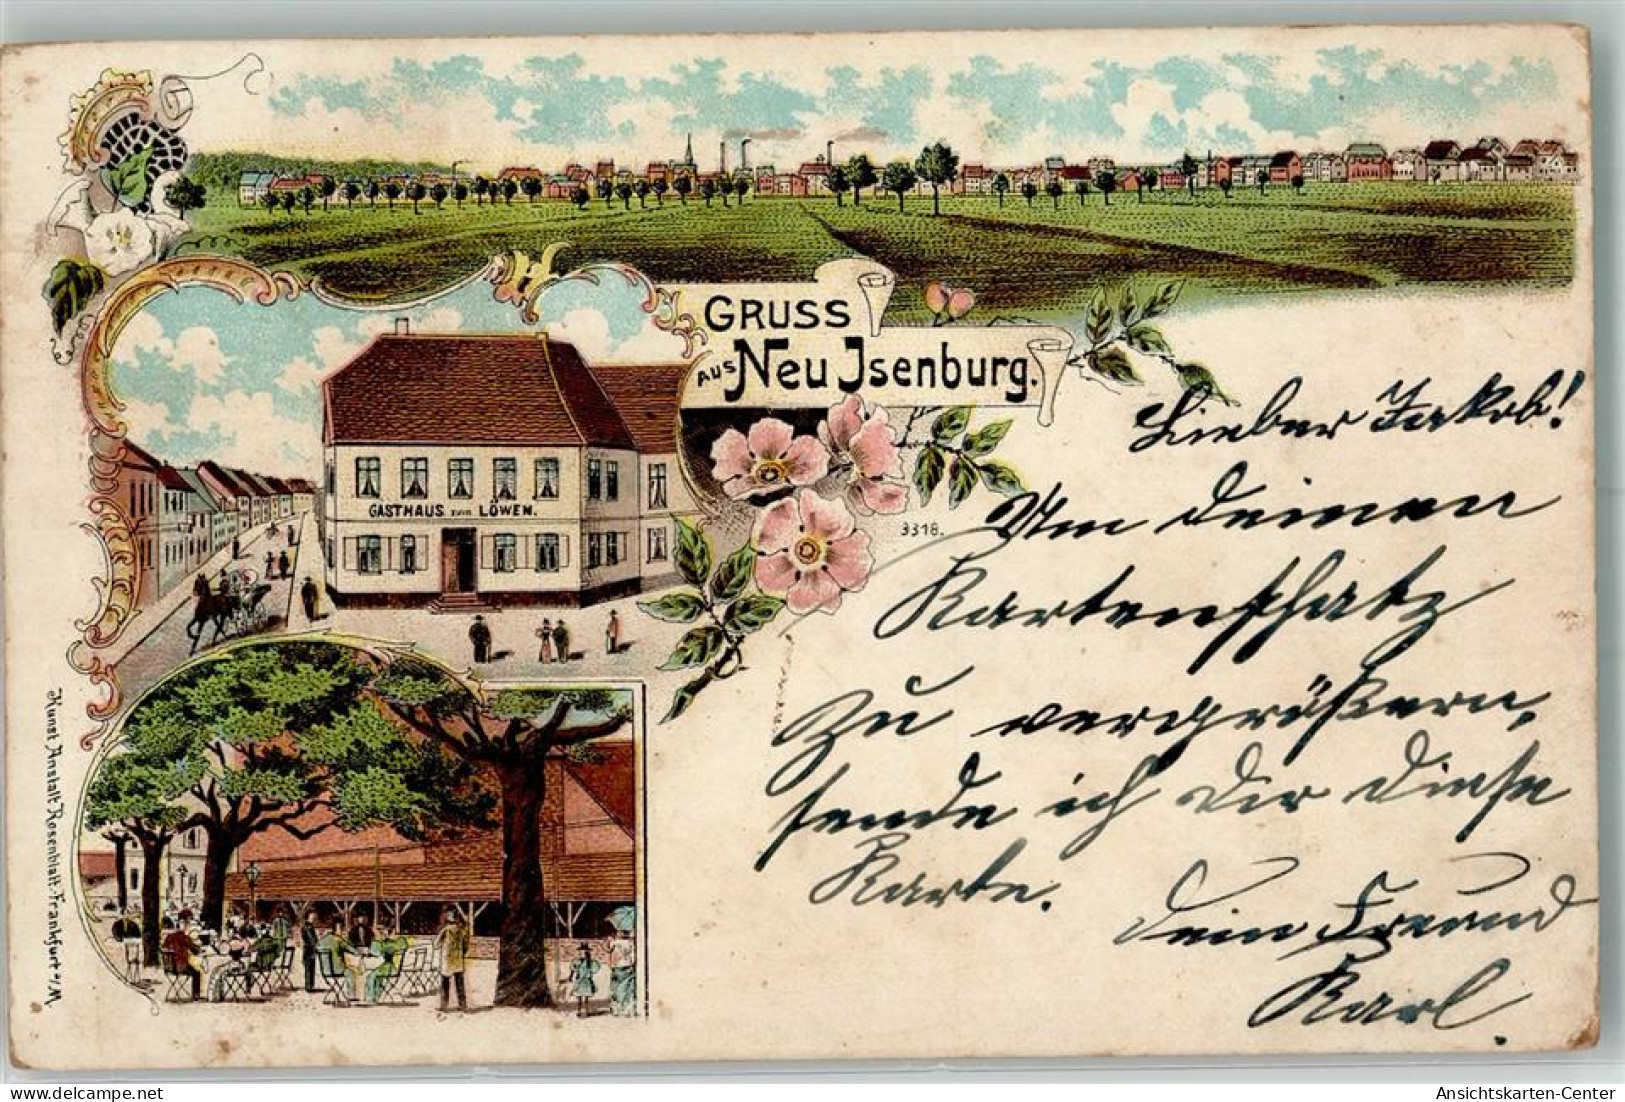 GRUSS
AUS Neu Isenburg.
GASTHAUS ZUM LÖWEN.
3318.
Lieber Jakob!
Um deinen
Kartenschatz
zu vergrößern,
sende ich Dir diese
Karte.
Dein Freund
Karl.
Kunst Anstalt Rosenblatt. Frankfurt a/M.
delcampe.net
Ansichtskarten-Center